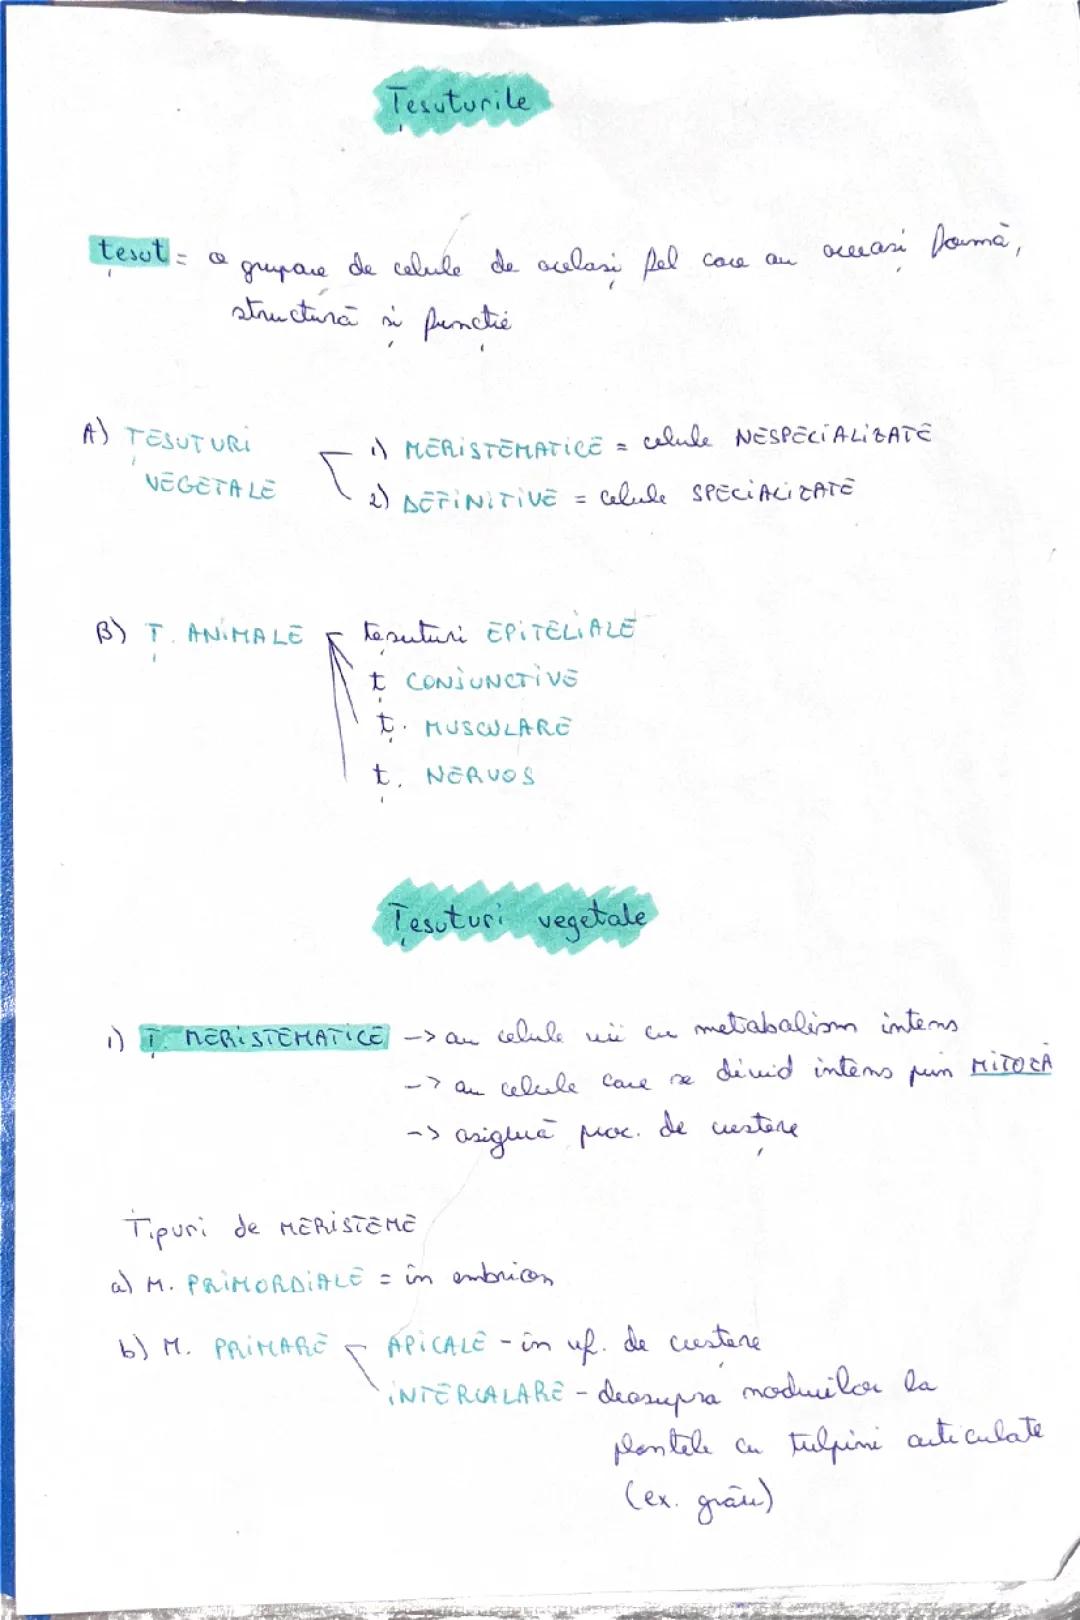 Țesuturile
țesut = o grupare de celule de același fel care au aceeași formă,
structură și funcție
A) ȚESUTURI VEGETALE
1) MERISTEMATICE = celule NESPECIALIZATE
2) DEFINITIVE = celule SPECIALIZATE
B) Ț. ANIMALE
țesuturi EPITELIALE
ț CONJUNCTIVE
ț. MUSCULARE
ț. NERVOS
Țesuturi vegetale
1) Ț. MERISTEMATICE -> au celule vii cu metabolism intens
-> au celule care se divid intens prin MITOZĂ
-> asigură proc. de creștere
Tipuri de MERISTEME
a) M. PRIMORDIALE = în embrion
b) M. PRIMARE
APICALE - în vf. de creștere
INTERCALARE - deasupra nodurilor la
plantele cu tulpini articulate
(ex. grâu)